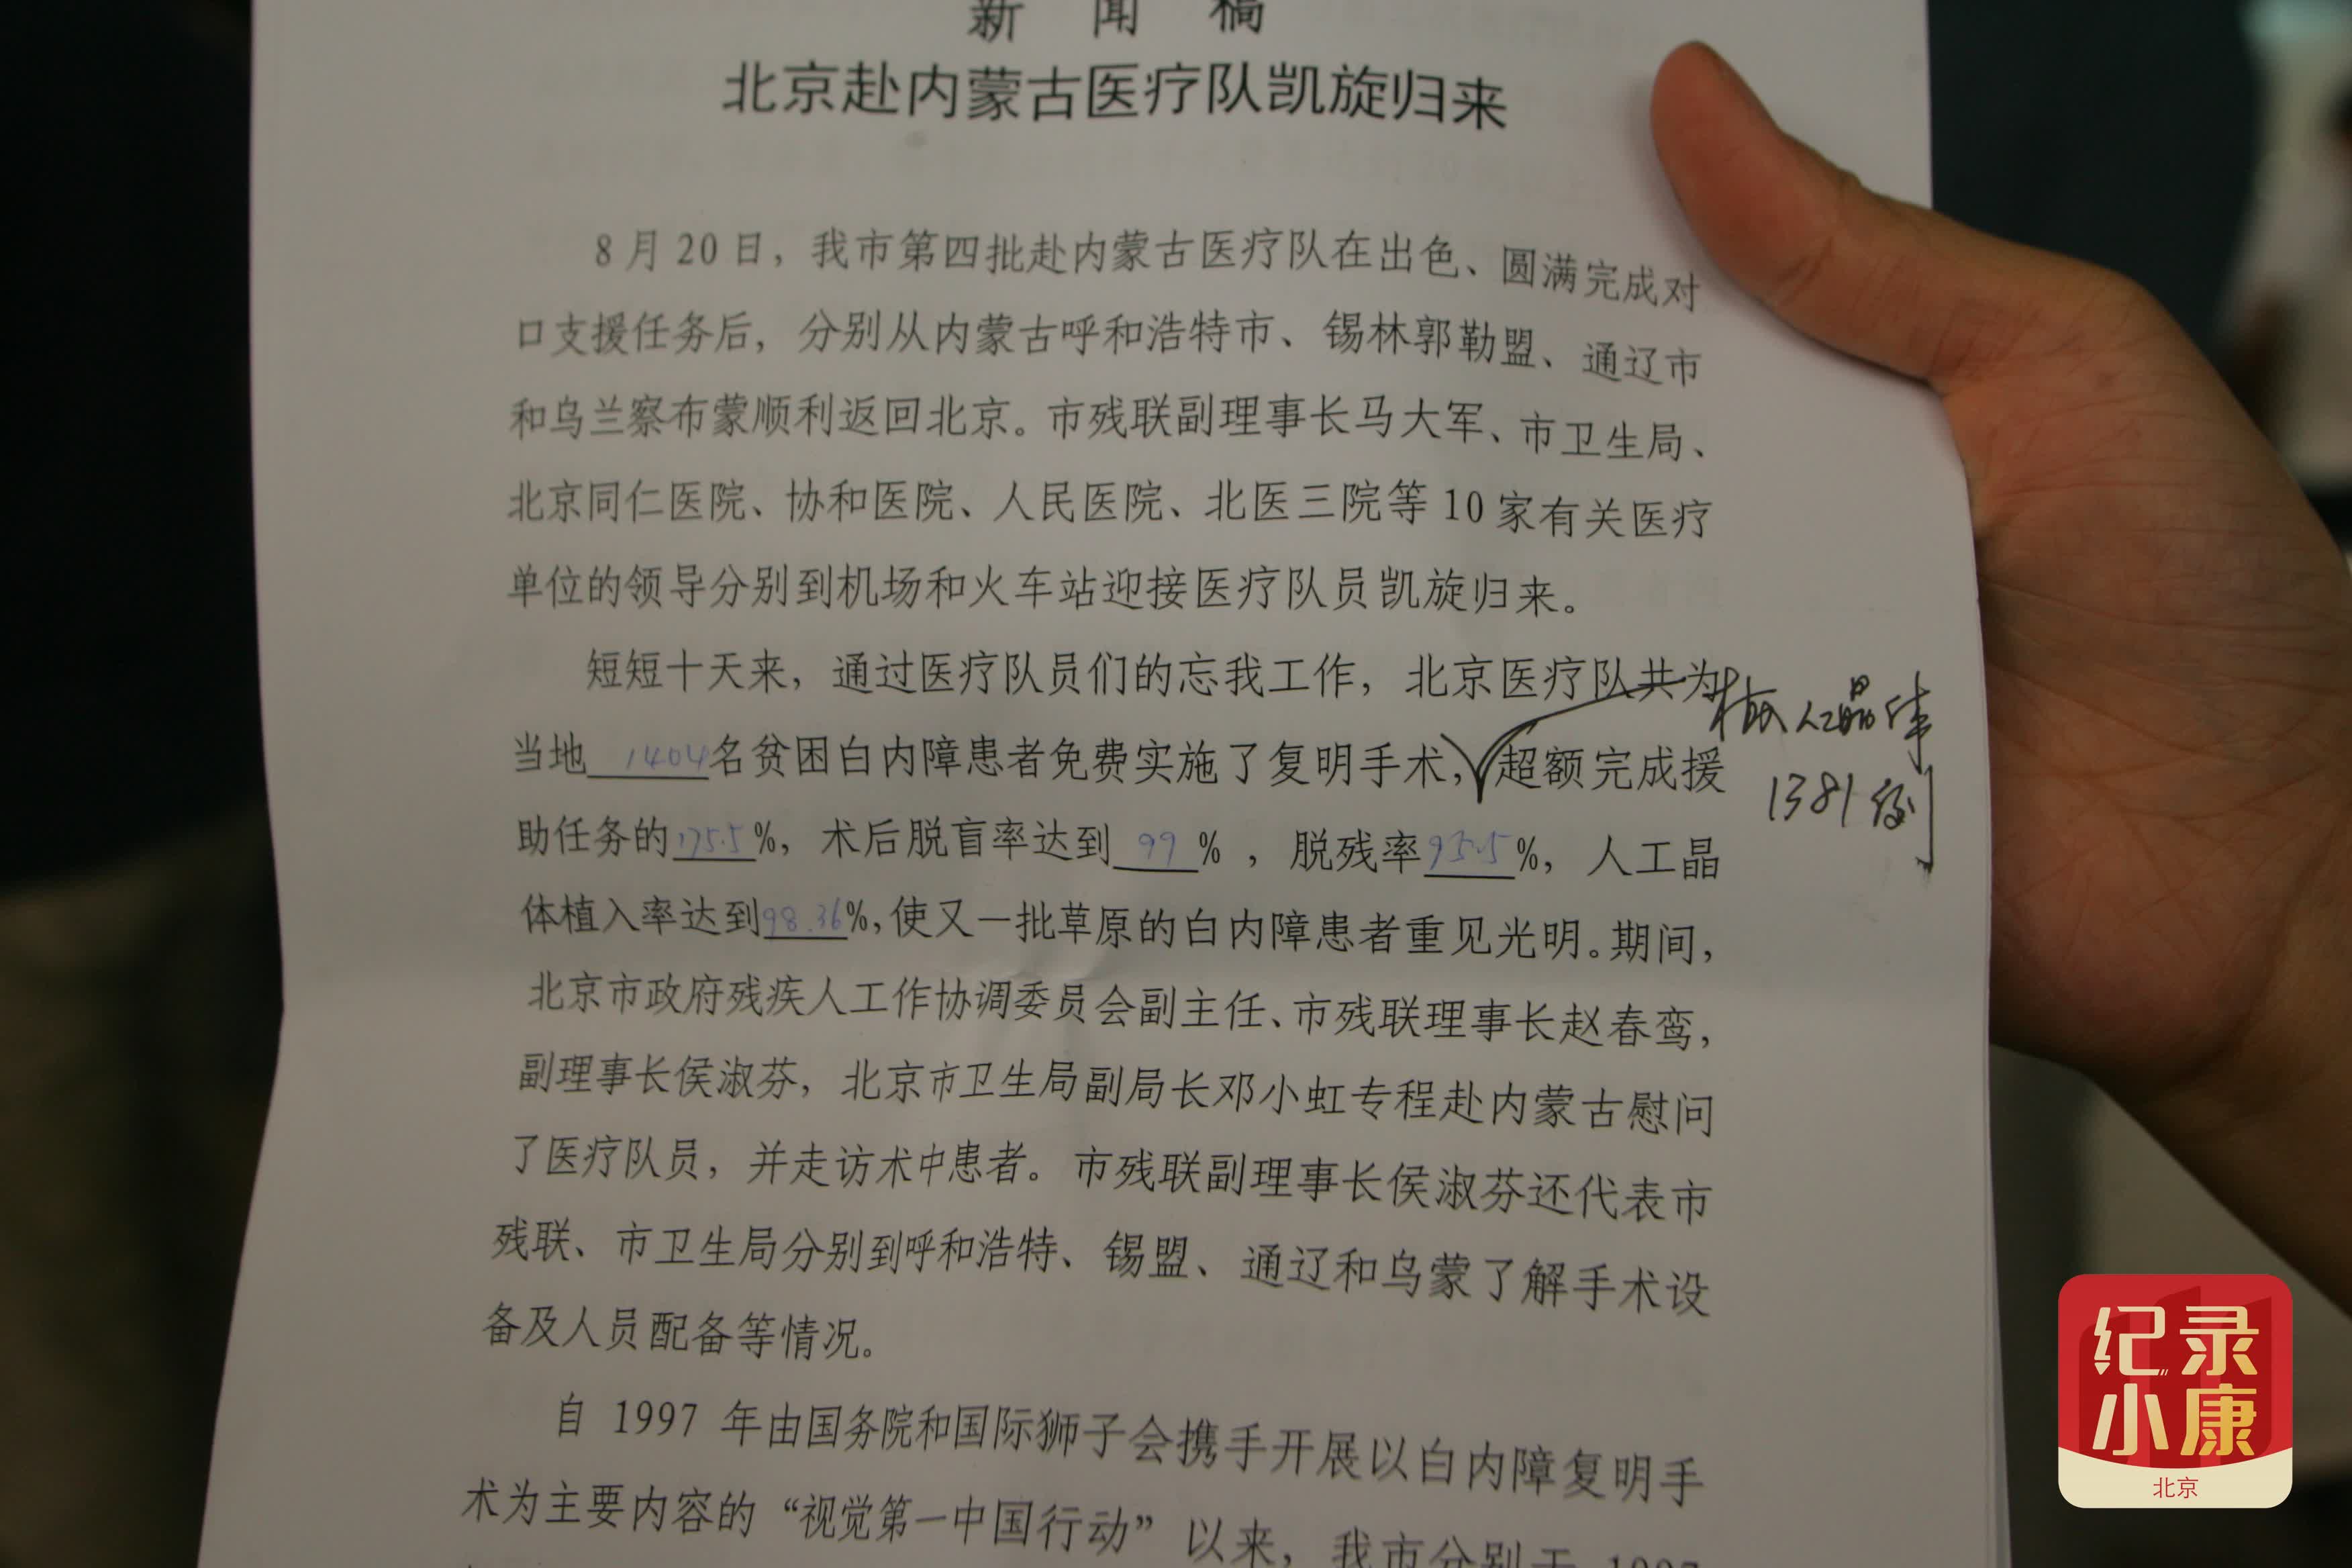 新闻稿
北京赴内蒙古医疗队凯旋归来
8月20日，我市第四批赴内蒙古医疗队在出色、圆满完成对
口支援任务后，分别从内蒙古呼和浩特市、锡林郭勒盟、通辽市
和乌兰察布蒙顺利返回北京。市残联副理事长马大军、市卫生局、
北京同仁医院、协和医院、人民医院、北医三院等10家有关医疗
单位的领导分别到机场和火车站迎接医疗队员凯旋归来。
短短十天来，通过医疗队员们的忘我工作，北京医疗队共为
当地1404名贫困白内障患者免费实施了复明手术，超额完成援
助任务的175.5%，术后脱盲率达到99%，脱残率95.5%，人工晶
体植入率达到98.36%，使又一批草原的白内障患者重见光明。期间，
北京市政府残疾人工作协调委员会副主任、市残联理事长赵春鸾，
副理事长侯淑芬，北京市卫生局副局长邓小虹专程赴内蒙古慰问
了医疗队员，并走访术中患者。市残联副理事长侯淑芬还代表市
残联、市卫生局分别到呼和浩特、锡盟、通辽和乌蒙了解手术设
备及人员配备等情况。
自 1997 年由国务院和国际狮子会携手开展以白内障复明手
术为主要内容的“视觉第一中国行动”以来，我市分别于 1997
植人工晶体
1381例
纪录
小康
北京